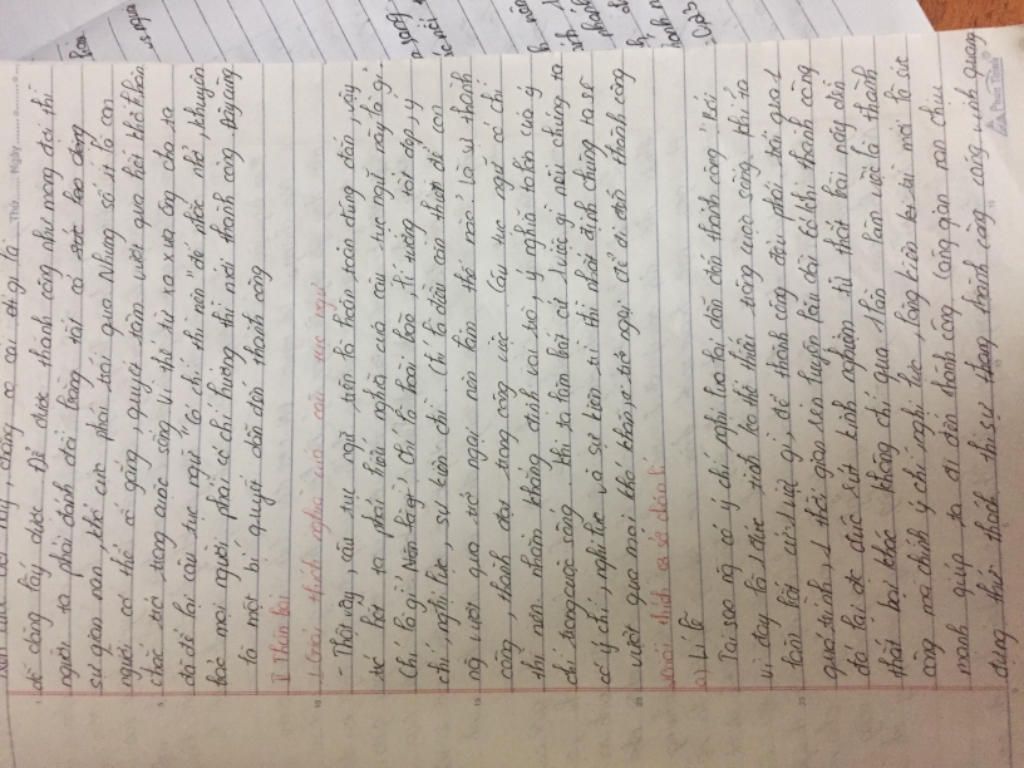 dễ dàng lấy được. Để được thành công như mong đợi thì
người ta phải đánh đổi bằng rất
sự gian nan, khổ cực phải trải qua. Nhưng số ít là con
người có thể cố gắng, quyết tâm vượt qua hết khó khăn
trước, trong cuộc sống. Vì thế từ xa xưa ông cha ta
đã để lại câu tục ngữ "Có chí thì nên" để nhắc nhở, khuyên
mọi người phải có chí hướng thì mới thành công. Đây cũng
là một bí quyết dẫn đến thành công
II Thân bài
1. Giải thích nghĩa của câu tục ngữ
- Thật vậy, câu tục ngữ trên là hoàn toàn đúng đắn, vậy
hết ta phải hiểu nghĩa của câu tục ngữ này là gì.
Chí là gì? Chí là hoài bão, lí tưởng tốt đẹp, ý
chí, nghị lực, sự kiên chì. Chí là điều cần thiết để con
ng vượt qua trở ngại. nên là thế nào? Là sự thành
công, thành đạt trong công việc. Câu tục ngữ có chí
thì nên nhằm khẳng định vai trò, ý nghĩa to lớn của ý
chí trong cuộc sống. Khi ta làm bất cứ 1 việc gì nếu chúng ta
có ý chí, nghị lực và sự kiên trì thì nhất định chúng ta sẽ
vượt qua mọi khó khăn, trở ngại để đi đến thành công
Giải thích cơ sở chân lí
a) Lí lẽ
Tại sao ng có ý chí nghị lực lại dẫn đến thành công? Bởi
vì đây là 1 đức tính ko thể thiếu trong cuộc sống, khi ta
làm bất cứ 1 việc gì, để thành công đều phải trải qua 1
quá trình, 1 thời gian rèn luyện lâu dài. Có khi thành công
đó lại đc đúc rút kinh nghiệm từ thất bại này đến
thất bại khác. Không chỉ qua 1 lần làm việc là thành
công mà chính ý chí nghị lực, lòng kiên trì mới là sức
mạnh giúp ta đi đến thành công. Càng gian nan chịu
đựng thử thách thì sự thành công càng vinh quang
Thứ........ Ngày........